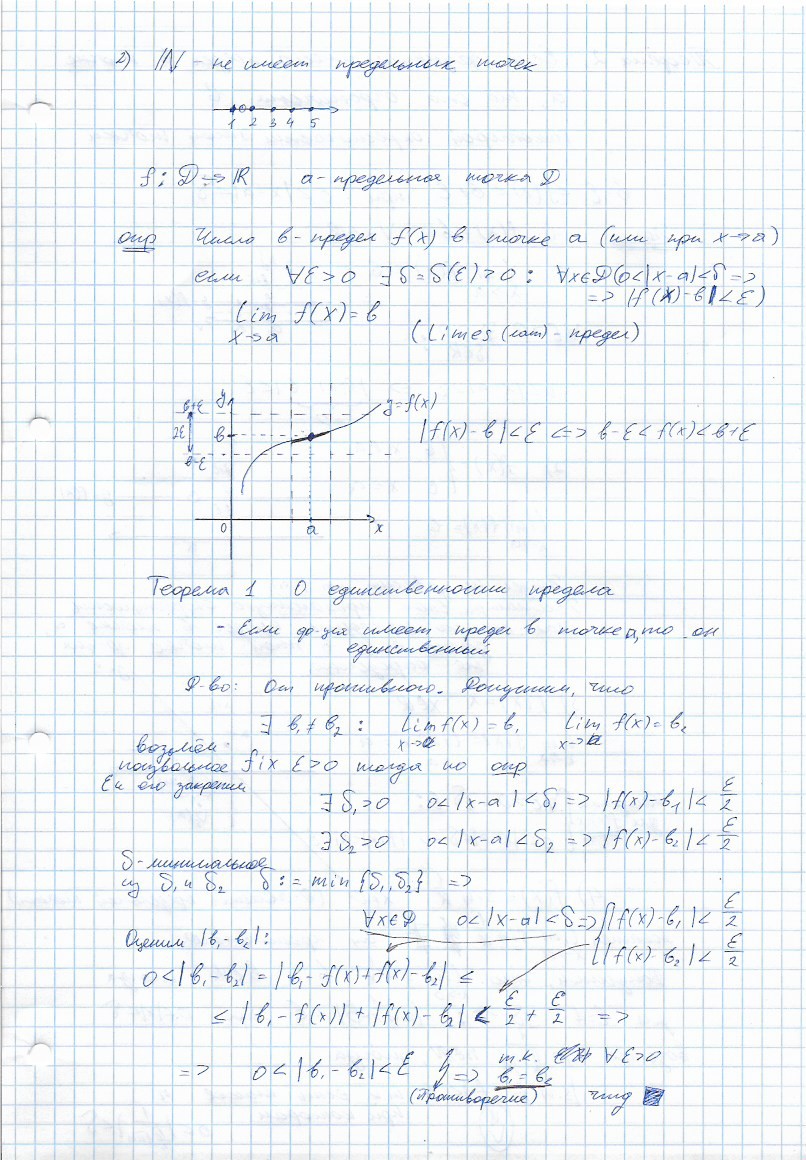 2) ℕ - не имеет предельных точек
1 2 3 4 5
f: D → ℝ a - предельная точка D
опр Число b - предел f(x) в точке a (или при x→a)
если ∀ε>0 ∃δ=δ(ε)>0 : ∀x∈D(0<|x-a|<δ =>
=> |f(x)-b|<ε)
Lim f(x) = b
x→a (Limes (лат) - предел)
y
b+ε y=f(x)
2ε b |f(x)-b|<ε <=> b-ε<f(x)<b+ε
b-ε
0 a x
Теорема 1 О единственности предела
- Если ф-ция имеет предел в точке a, то он
единственный
Д-во: От противного. Допустим, что
∃ b₁≠b₂ : Lim f(x) = b₁ Lim f(x) = b₂
x→a x→a
возьмём
произвольное fix ε>0 тогда по опр
ε и его закрепим
∃ δ₁>0 0<|x-a|<δ₁ => |f(x)-b₁|< ε/2
∃ δ₂>0 0<|x-a|<δ₂ => |f(x)-b₂|< ε/2
δ-минимальное
из δ₁ и δ₂ δ := min{δ₁,δ₂} =>
∀x∈D 0<|x-a|<δ => |f(x)-b₁|< ε/2
|f(x)-b₂|< ε/2
Оценим |b₁-b₂|:
0<|b₁-b₂| = |b₁-f(x)+f(x)-b₂| ≤
≤ |b₁-f(x)| + |f(x)-b₂| < ε/2 + ε/2 =>
=> 0<|b₁-b₂|<ε => т.к. ∀ε>0
b₁=b₂
(Противоречие) чтд